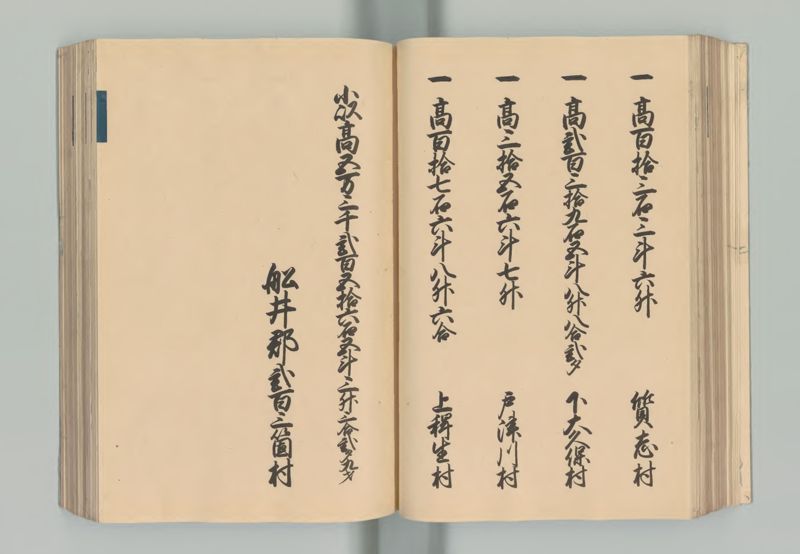 一高百拾三石三斗六升 質志村
一高弐百三拾九石五斗八升八合弐夕 下大久保村
一高三拾五石六斗七升 戸津川村
一高百拾七石六斗八升六合 上稗生村
小以高五万三千弐百五拾六石五斗三升三合弐夕九才
船井郡弐百三箇村